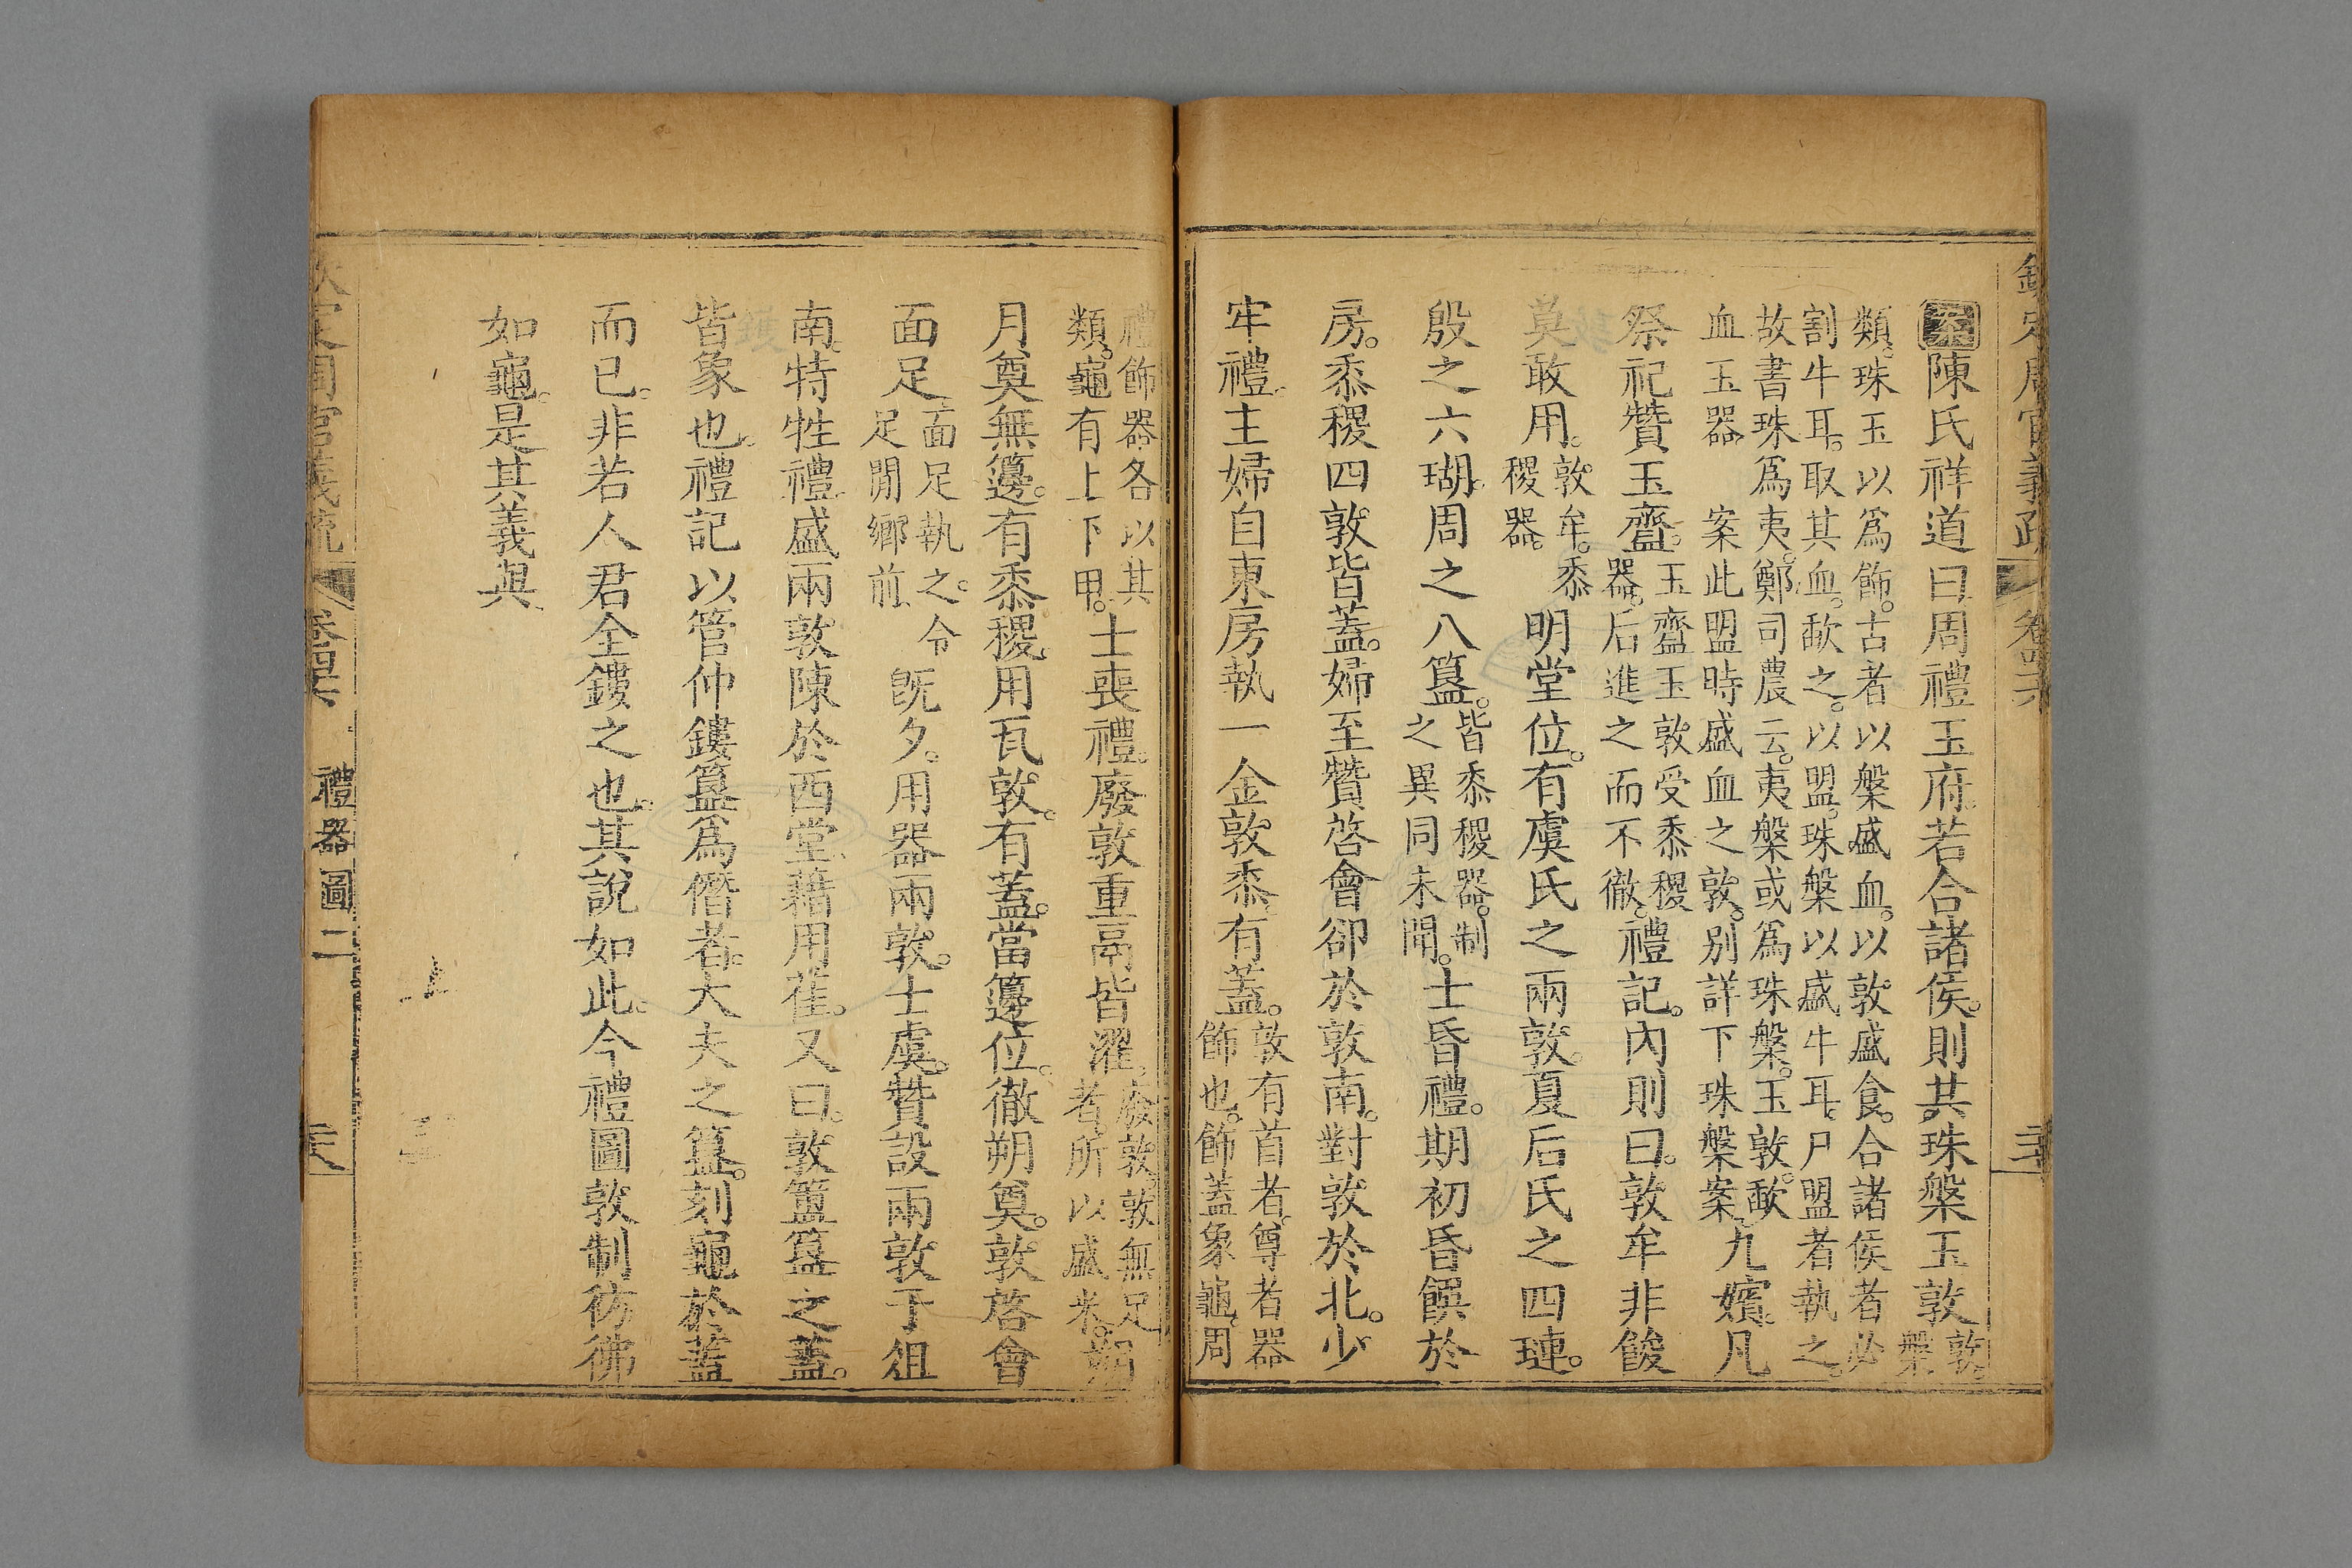 欽定周官義疏
陳氏祥道曰周禮玉府若合諸侯。則其珠槃玉敦敦。槃
類。珠玉以爲飾。古者以槃盛血。以敦盛食。合諸侯者必
割牛耳。取其血。歃之。以盟。珠槃以盛牛耳。尸盟者執之。
故書珠爲夷。鄭司農云。夷槃或爲珠槃。玉敦。歃
血玉器 案此盟時盛血之敦。别詳下珠槃案九嬪。凡
祭祀贊玉齍。玉齍玉敦受黍稷器。后進之而不徹。禮記。內則曰。敦牟非餕
莫敢用。敦牟。黍稷器。明堂位。有虞氏之兩敦。夏后氏之四璉。
殷之六瑚。周之八簋。皆黍稷器。制之異同未聞。士昏禮。期初昏饌於
房。黍稷四敦。皆蓋。婦至贊啓會卻於敦南。對敦於北。少
牢禮。主婦自東房執一金敦黍。有蓋。敦有首者。尊者器飾也。飾蓋象龜。周
禮飾器各以其類。龜有上下甲。士喪禮。廢敦重鬲皆濯。廢敦。敦無足者。所以盛米。朔
月奠無籩。有黍稷。用瓦敦。有蓋。當籩位。徹朔奠。敦啓會
面足。面足執之。令足閒鄉前。旣夕。用器兩敦。士虞。贊設兩敦于俎
南。特牲禮。盛兩敦陳於西堂。藉用萑。又曰。敦簠簋之蓋。
皆象也。禮記以管仲鏤簋爲僭者。大夫之簋。刻龜於蓋
而已。非若人君全鏤之也。其說如此。今禮圖敦制彷彿
如龜。是其義與。
禮器圖二